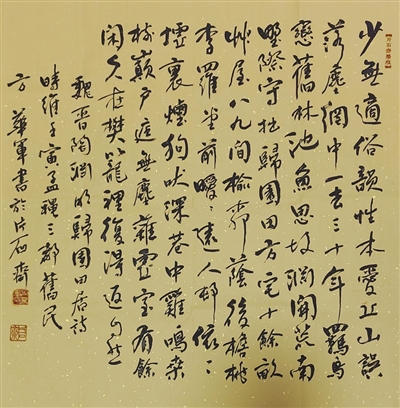 少無適俗韻性本愛丘山誤
落塵網中一去三十年羈鳥
戀舊林池魚思故淵開荒南
野際守拙歸園田方宅十餘畝
艸屋八九間榆柳蔭後檐桃
李羅堂前曖〻遠人邨依〻
墟裏煙狗吠深巷中雞鳴桑
樹巔戶庭無塵雜虛室有餘
閑久在樊籠裡復得返自然
魏晉陶淵明歸園田居詩
時維壬寅孟穐三都舊民
方華軍書於片石齋